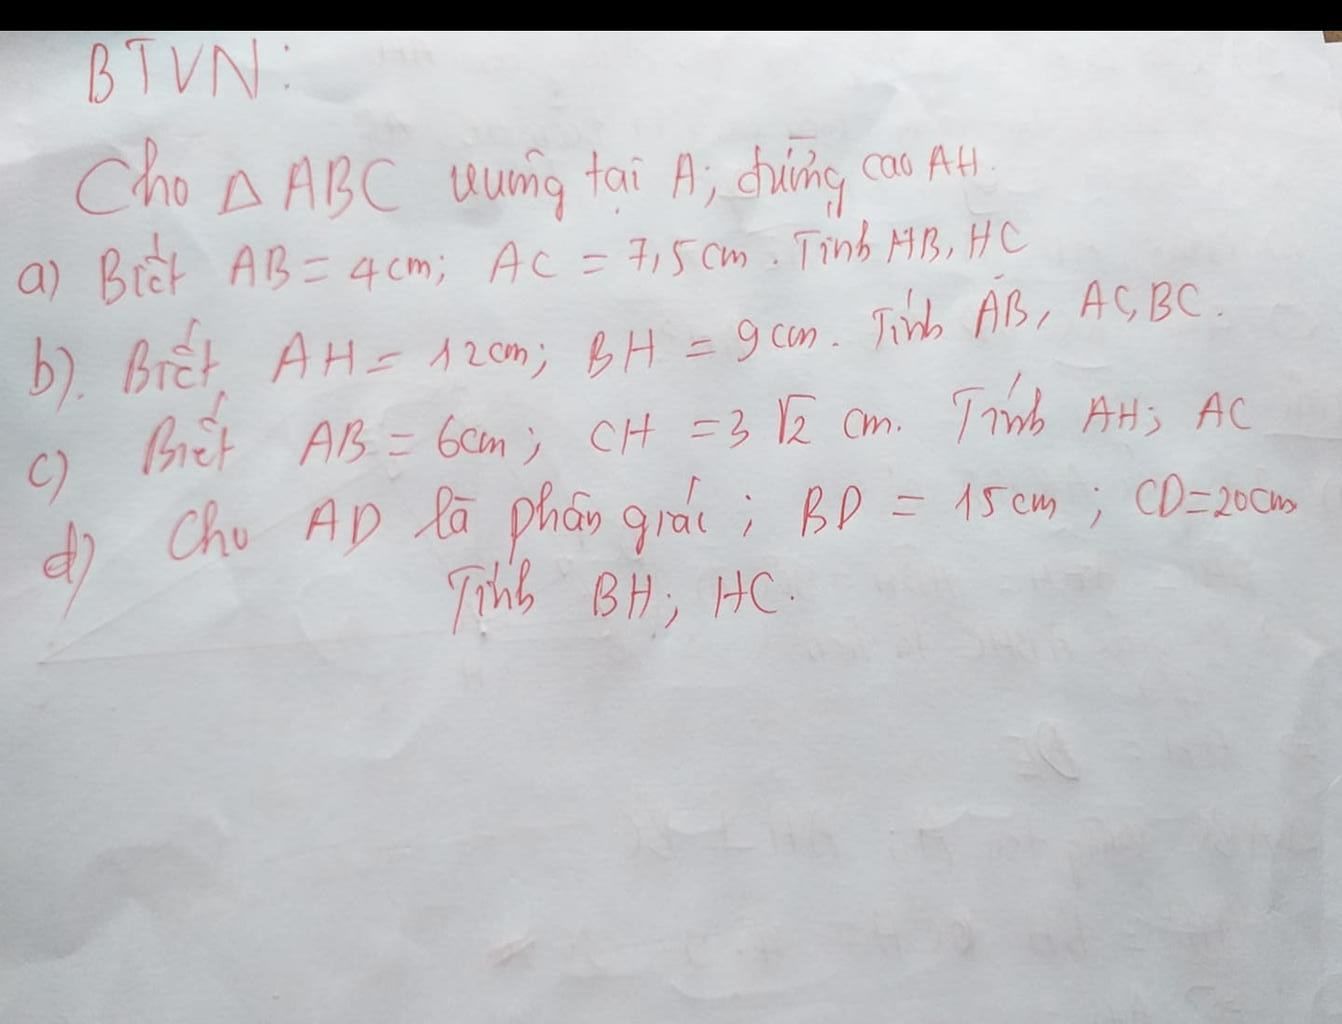 BTVN:
Cho △ ABC vuông tại A; đường cao AH.
a) Biết AB = 4cm; AC = 7,5cm. Tính HB, HC
b). Biết AH = 12cm; BH = 9cm. Tính AB, AC, BC.
c) Biết AB = 6cm; CH = 3√2 cm. Tính AH; AC
d) Cho AD là phân giác; BD = 15cm; CD=20cm
Tính BH; HC.